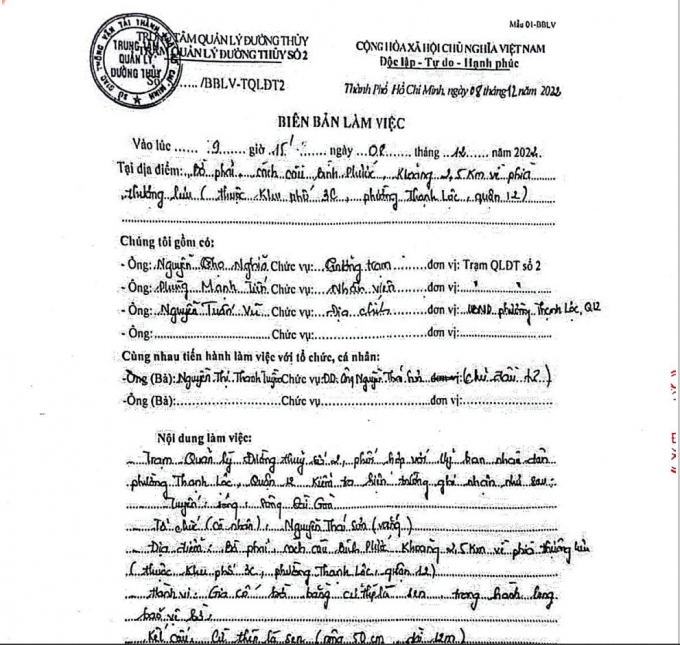 Mẫu 01-BBLV
TRUNG TÂM QUẢN LÝ ĐƯỜNG THỦY
TRẠM QUẢN LÝ ĐƯỜNG THỦY SỐ 2
Số ....../BBLV-TQLĐT2
TRUNG TÂM
QUẢN LÝ
ĐƯỜNG THỦY
CỘNG HÒA XÃ HỘI CHỦ NGHĨA VIỆT NAM
Độc lập - Tự do - Hạnh phúc
Thành Phố Hồ Chí Minh, ngày 08 tháng 12 năm 2022
BIÊN BẢN LÀM VIỆC
Vào lúc ...... 9 giờ 15' ngày 08 tháng 12 năm 2022.
Tại địa điểm: Bờ phải, cách cầu Bình Phước, Khoảng 2,5 Km về phía
thượng lưu ( thuộc Khu phố 3C, phường Thạnh Lộc, quận 12)
Chúng tôi gồm có:
- Ông: Nguyễn Nghĩa Chức vụ: trạm đơn vị: Trạm QLĐT số 2
- Ông: Phùng Mạnh Tiến Chức vụ: Nhân viên đơn vị: " "
- Ông: Nguyễn Tuấn Vũ Chức vụ: Địa chính đơn vị: UBND phường Thạnh Lộc, Q12
- Ông: Chức vụ: đơn vị:
Cùng nhau tiến hành làm việc với tổ chức, cá nhân:
-Ông (Bà): Nguyễn Thị Thanh Tuyền Chức vụ: DD. Ông Nguyễn Thái Sơn (Chủ đầu tư)
-Ông (Bà): Chức vụ đơn vị:
Nội dung làm việc:
Trạm Quản lý Đường thuỷ số 2, phối hợp với Uỷ ban nhân dân
phường Thạnh Lộc, Quận 12 kiểm tra hiện trường ghi nhận như sau:
Tuyến sông: Sông Sài Gòn
Tổ chức (cá nhân): Nguyễn Thái Sơn (vắng)
Địa điểm: Bờ phải, cách cầu Bình Phước Khoảng 2,5 Km về phía thượng lưu
( thuộc Khu phố 3C, phường Thạnh Lộc, quận 12)
Hành vi: Gia cố bờ bằng cừ thép lá sen, trong hành lang
bảo vệ bờ.
Kết cấu: Cừ thép lá sen (rộng 50 cm dài 12m)